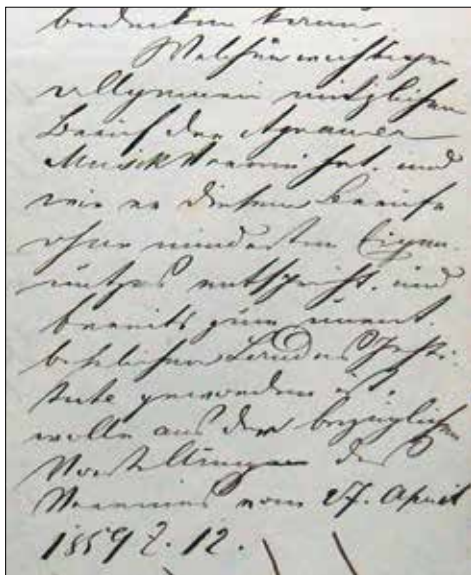 bedecken kann.
Welchen wichtigen
allgemein nützlichen
Beruf der Agramer
Musik Verein hat, und
wie er diesem Berufe
ohne mindesten Eigen-
nutzes entspricht, und
bereits zum unent-
behrlichen Landes Insti-
tute geworden ist,
wolle aus den bezüglichen
Vorstellungen des
Vereines vom 27. April
1859 Z. 12.